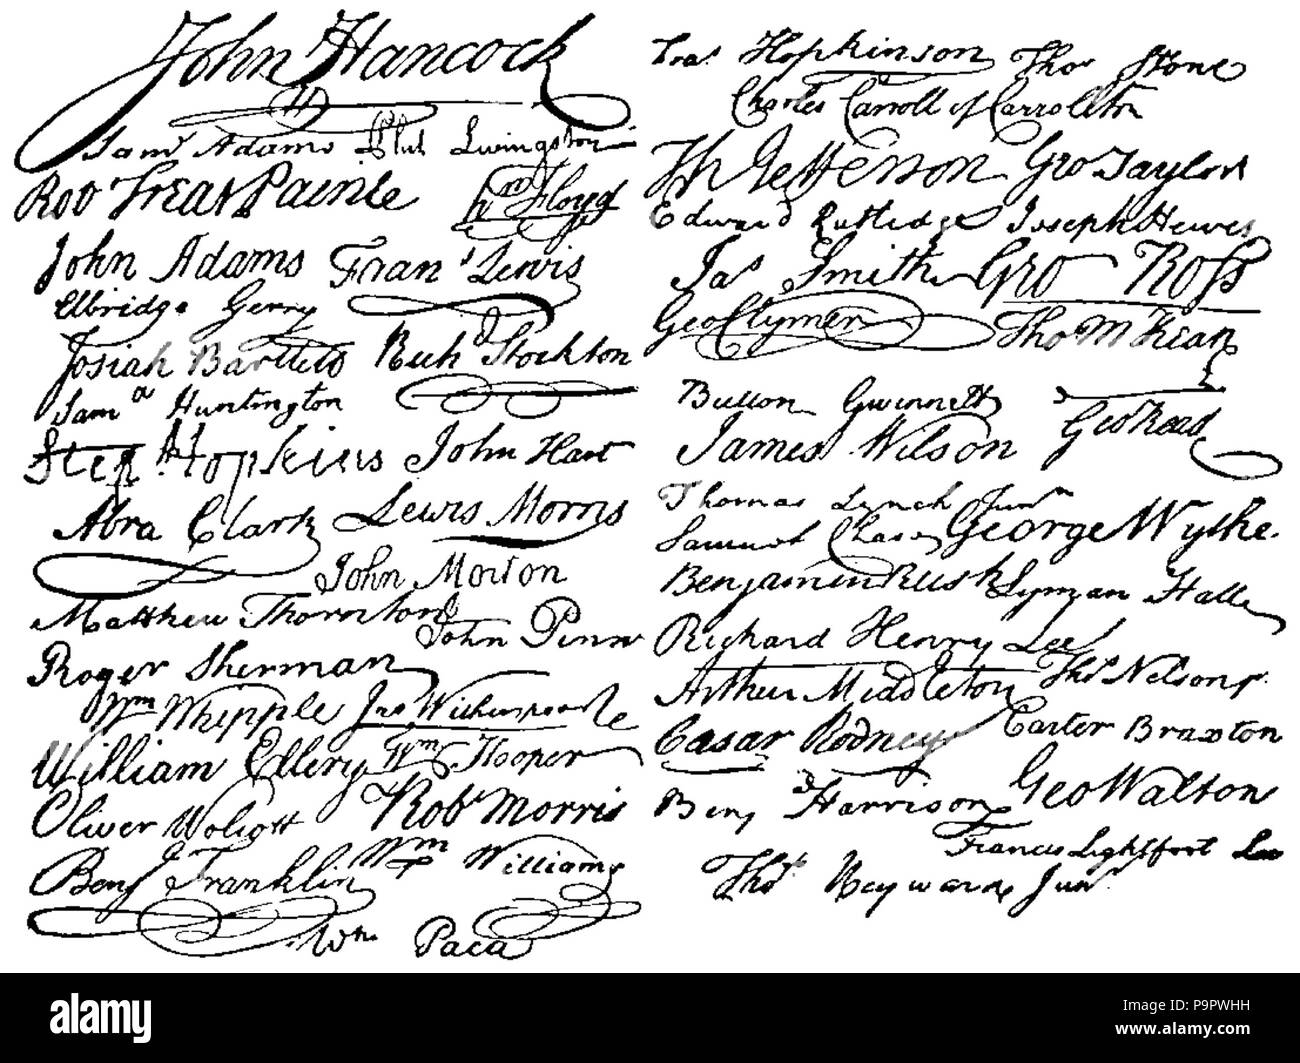 John Hancock
Sam Adams Phil Livingston
Rob Treat Paine Wm Floyd
John Adams Frans Lewis
Elbridge Gerry
Josiah Bartlett Richd Stockton
Saml Huntington
Step Hopkins John Hart
Abra Clark Lewis Morris
John Morton
Matthew Thornton
John Penn
Roger Sherman
Wm Whipple Jno Witherspoon
William Ellery Wm Hooper
Oliver Wolcott Robt Morris
Benj Franklin Wm Williams
Wm Paca
Fras Hopkinson Thos Stone
Charles Carroll of Carrollton
Th Jefferson Geo Taylor
Edward Rutledge Joseph Hewes
Jas Smith Geo Ross
Geo Clymer Tho M Kean
Button Gwinnett Geo Read
James Wilson
Thomas Lynch Junr
Samuel Chase George Wythe
Benjamin Rush Lyman Hall
Richard Henry Lee
Arthur Middleton Thos Nelson jr
Cæsar Rodney Carter Braxton
Benj Harrison Geo Walton
Francis Lightfoot Lee
Thos Heyward Junr
alamy
Image ID: P9PWHH
www.alamy.com